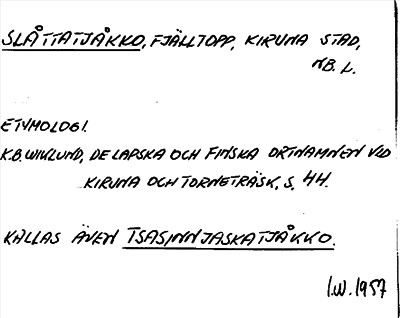 SLÅTTATJÅKKO, FJÄLLTOPP, KIRUNA STAD,
NB. L.
ETYMOLOGI.
K.B. WIKLUND, DE LAPSKA OCH FINSKA ORTNAMNEN VID
KIRUNA OCH TORNETRÄSK, S. 44.
KALLAS ÄVEN TSASINNJASKATJÅKKO.
I.W. 1957